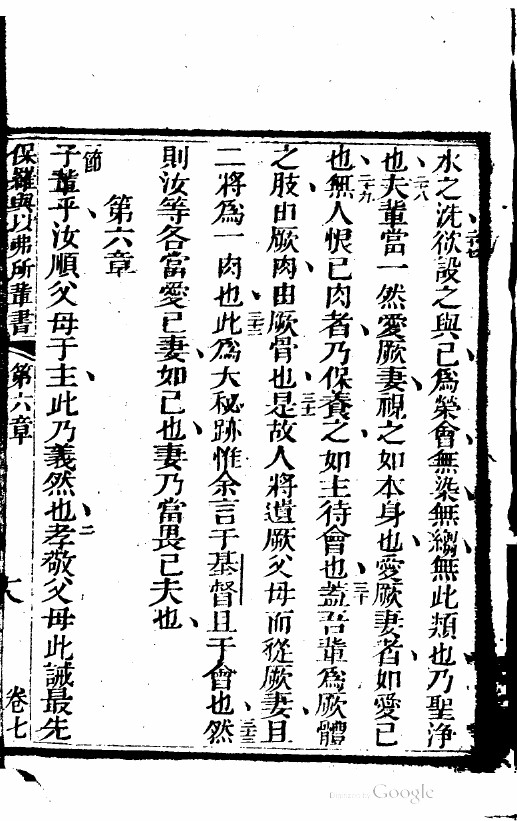 水之洗欲設之與己爲榮會無染無縐無此類也乃聖淨
也二八夫輩當一然愛厥妻視之如本身也愛厥妻者如愛己
也二九無人恨己肉者乃保養之如主待會也三十蓋吾輩爲厥體
之肢由厥肉由厥骨也三一是故人將遺厥父母而從厥妻且
二將爲一肉也三二此爲大秘跡惟余言于基督且于會也三三然
則汝等各當愛己妻如己也妻乃當畏己夫也
第六章
節子輩乎汝順父母于主此乃義然也二孝敬父母此誡最先
保羅與以弗所輩書 第六章 卷七
Digitized by Google